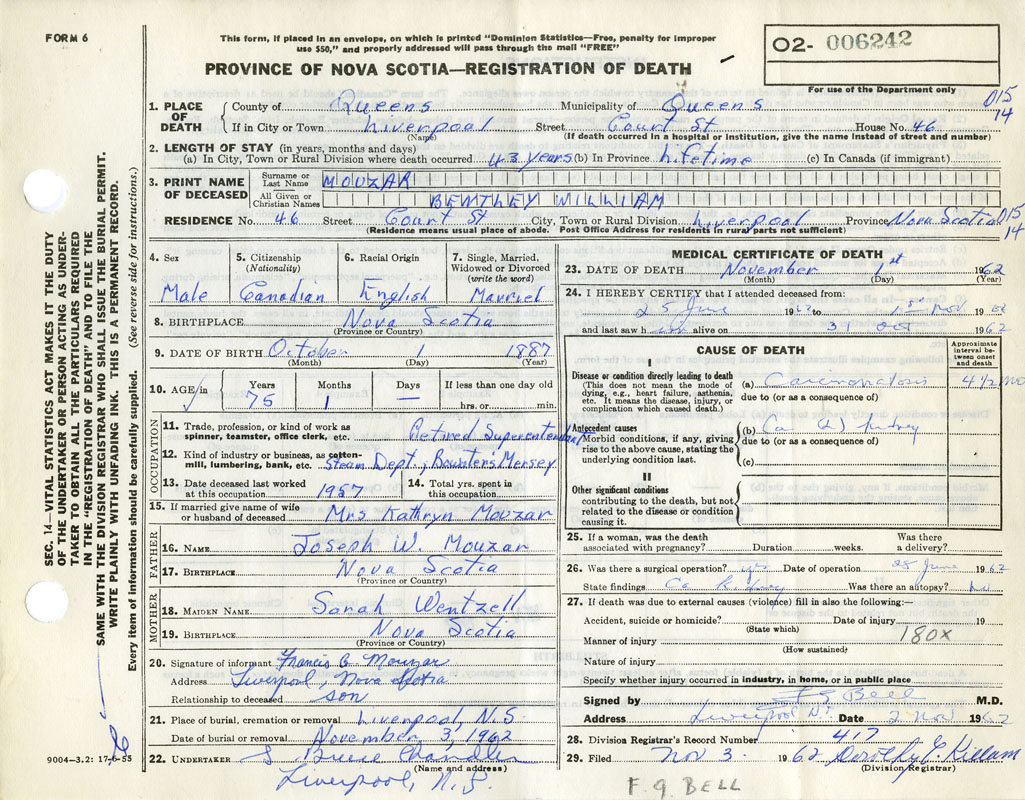 FORM 6
This form, if placed in an envelope, on which is printed "Dominion Statistics—Free, penalty for improper
use $50," and properly addressed will pass through the mail "FREE"
PROVINCE OF NOVA SCOTIA—REGISTRATION OF DEATH
O2- 006242
For use of the Department only
015
14
SEC. 14—VITAL STATISTICS ACT MAKES IT THE DUTY
OF THE UNDERTAKER OR PERSON ACTING AS UNDER-
TAKER TO OBTAIN ALL THE PARTICULARS REQUIRED
IN THE "REGISTRATION OF DEATH" AND TO FILE THE
SAME WITH THE DIVISION REGISTRAR WHO SHALL ISSUE THE BURIAL PERMIT.
WRITE PLAINLY WITH UNFADING INK. THIS IS A PERMANENT RECORD.
Every item of information should be carefully supplied. (See reverse side for instructions.)
1. PLACE OF DEATH
County of Queens Municipality of Queens
If in City or Town Liverpool Street Court St House No. 46
(Name) (If death occurred in a hospital or institution, give the name instead of street and number)
2. LENGTH OF STAY (in years, months and days)
(a) In City, Town or Rural Division where death occurred 43 years (b) In Province Lifetime (c) In Canada (if immigrant)
3. PRINT NAME OF DECEASED
Surname or Last Name MOUZAR
All Given or Christian Names BENTLEY WILLIAM
RESIDENCE No. 46 Street Court St City, Town or Rural Division Liverpool Province Nova Scotia 015
14
(Residence means usual place of abode. Post Office Address for residents in rural parts not sufficient)
4. Sex
Male
5. Citizenship
(Nationality)
Canadian
6. Racial Origin
English
7. Single, Married,
Widowed or Divorced
(write the word)
Married
8. BIRTHPLACE Nova Scotia
(Province or Country)
9. DATE OF BIRTH October 1 1887
(Month) (Day) (Year)
10. AGE in
Years Months Days If less than one day old
75 1 — hrs. or min.
OCCUPATION
11. Trade, profession, or kind of work as
spinner, teamster, office clerk, etc. Retired Superentendant
12. Kind of industry or business, as cotton-
mill, lumbering, bank, etc. Steam Dept., Bowaters Mersey
13. Date deceased last worked
at this occupation 1957
14. Total yrs. spent in
this occupation
15. If married give name of wife
or husband of deceased Mrs Kathryn Mouzar
FATHER
16. NAME Joseph W. Mouzar
17. BIRTHPLACE Nova Scotia
(Province or Country)
MOTHER
18. MAIDEN NAME Sarah Wentzell
19. BIRTHPLACE Nova Scotia
(Province or Country)
20. Signature of informant Francis Mouzar
Address Liverpool, Nova Scotia
Relationship to deceased son
21. Place of burial, cremation or removal Liverpool, N.S.
Date of burial or removal November 3, 1962
22. UNDERTAKER Bruce Chandler
(Name and address)
Liverpool, N.S.
9004-3.2: 17-6-55
MEDICAL CERTIFICATE OF DEATH
23. DATE OF DEATH November 1st 1962
(Month) (Day) (Year)
24. I HEREBY CERTIFY that I attended deceased from:
25 June 1962 to 1st Nov 1962
and last saw h im alive on 31 Oct 1962
CAUSE OF DEATH
Approximate
interval be-
tween onset
and death
I
Disease or condition directly leading to death
(This does not mean the mode of
dying, e.g., heart failure, asthenia,
etc. It means the disease, injury, or
complication which caused death.)
(a) Carcinomatosis 4½ mo
due to (or as a consequence of)
Antecedent causes
Morbid conditions, if any, giving
rise to the above cause, stating the
underlying condition last.
(b) Ca Kidney
due to (or as a consequence of)
(c)
II
Other significant conditions
contributing to the death, but not
related to the disease or condition
causing it.
25. If a woman, was the death
associated with pregnancy? Duration weeks. Was there
a delivery?
26. Was there a surgical operation? yes Date of operation 28 June 1962
State findings Ca Kidney Was there an autopsy? no
27. If death was due to external causes (violence) fill in also the following:—
Accident, suicide or homicide? Date of injury 19
(State which)
180X
Manner of injury
(How sustained)
Nature of injury
Specify whether injury occurred in industry, in home, or in public place
Signed by F G Bell M.D.
Address Liverpool N.S. Date 2 Nov 1962
28. Division Registrar's Record Number 417
29. Filed Nov 3 1962 Dorothy C. Killam
(Division Registrar)
F. G BELL